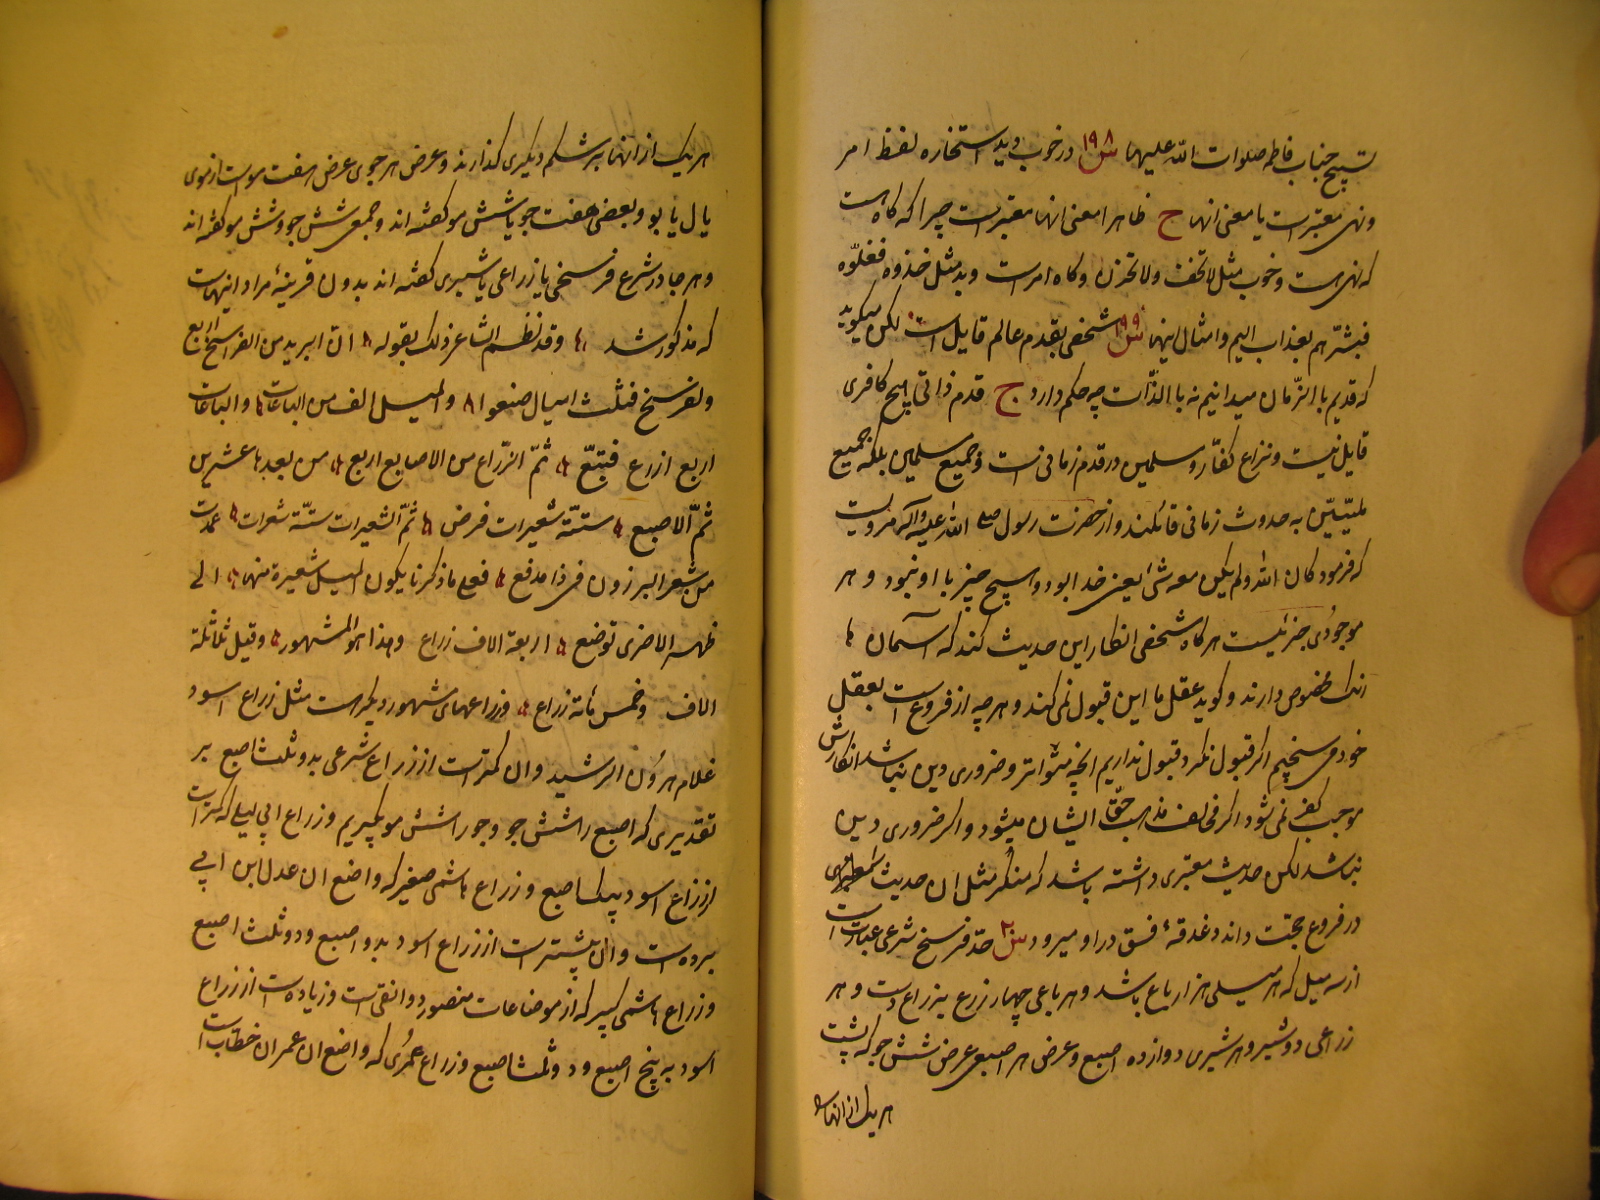 تسبیح جناب فاطمه صلوات الله علیها س ۱۹۸ در خوب و بد استخاره لفظ امر
و نهی معتبر است یا معنی انها ج ظاهرا معنی انها معتبر است چرا که کاه هست
که نهی هست و خوب مثل لا تخف و لا تحزن و کاه امر است و بد مثل خذوه فغلّوه
فبشّرهم بعذاب الیم و امثال اینها س ۱۹۹ شخصی بقدم عالم قایل است لکن میکوید
که قدیم با الزّمان میدانیم نه با الذّات چه حکم دارد ج قدم ذاتی را هیچ کافری
قایل نیست و نزاع کفّار و مسلمین در قدم زمانی است و جمیع مسلمین بلکه جمیع
ملیّیّین به حدوث زمانی قائلند و از حضرت رسول صلی الله علیه و اله مرویست
که فرمود کان الله و لم یکن معه شئ یعنی خدا بود و هیچ چیز با او نبود و هر
موجودی جزئیست هرکاه شخصی انکار این حدیث کند که آسمان
انک مخصوص دارند و کوید عقل ما این قبول نمی کند و هرچه از فروع است بعقل
خود می سنجیم اکر قبول نکرد قبول نداریم انچه متواتر و ضروری دین نباشد انکارش
موجب کفر نمی شود اکر مخالف مذهب حقّ ایشان میشود و اکر ضروری دین
نباشد لکن حدیث معتبری داشته باشد که منکر مثل ان حدیث
در فروع حجت داند دغدقهٔ فسق در او میرود س ۲۰۰ حدّ فرسخ شرعی عبارت است
از سه میل که هر میلی هزار باع باشد و هر باعی چهار زرع بزراع دست و هر
زراعی دو شبر و هر شبری دوازده اصبع و عرض هر اصبعی عرض شش جو که پشت
هر یک از انها
هر یک از انها بر شکم دیکری کذارند و عرض هر جوی عرض هفت مو است از موی
یال یابو و بعضی هفت جو یا شش مو کفته اند و جمعی شش جو و شش مو کفته اند
و هر جا در شرع فرسخی یا زراعی یا شبری کفته اند بدون قرینهٔ مراد اینهاست
که مذکور شد و قد نظم الشاعر ذلک بقوله ان البرید من الفراسخ اربع
و لفرسخ فثلث امیال صنعوا و المیل الف من الباعات و الباعات
اربع ازرع فتتبّع ثمّ الزّراع من الاصابع اربع من بعدها عشرین
ثمّ الاصبع ستّة شعیرات فرض ثمّ الشعیرات ستّة شعرات عدت
من شعر البرزون فی ذا مدفع فعلی ما ذکرنا یکون المیل شعیرة منها الی
ظهر الاخری توضع اربعة الاف زراع و هذا هو المشهور و قیل ثلاثة
الاف و خمس مائة زراع و زراعهای مشهور دیکر است مثل زراع اسود
غلام هرون الرشید و ان کمتر است از زراع شرعی بدو ثلث اصبع بر
تقدیری که اصبع را شش جو و جو را شش مو بکیریم و زراع ابی لیلی که کمتر است
از زراع اسود بیک اصبع و زراع هاشمی صغیر که واضع ان عدل ابن ابی
برده است و ان بیشتر است از زراع اسود بدو اصبع و دو ثلث اصبع
و زراع هاشمی کبیر که از موضاعات منصور دوانقی است و زیاده است از زراع
اسود به پنج اصبع و دو ثلث اصبع و زراع عمری که واضع ان عمر ان خطاب است